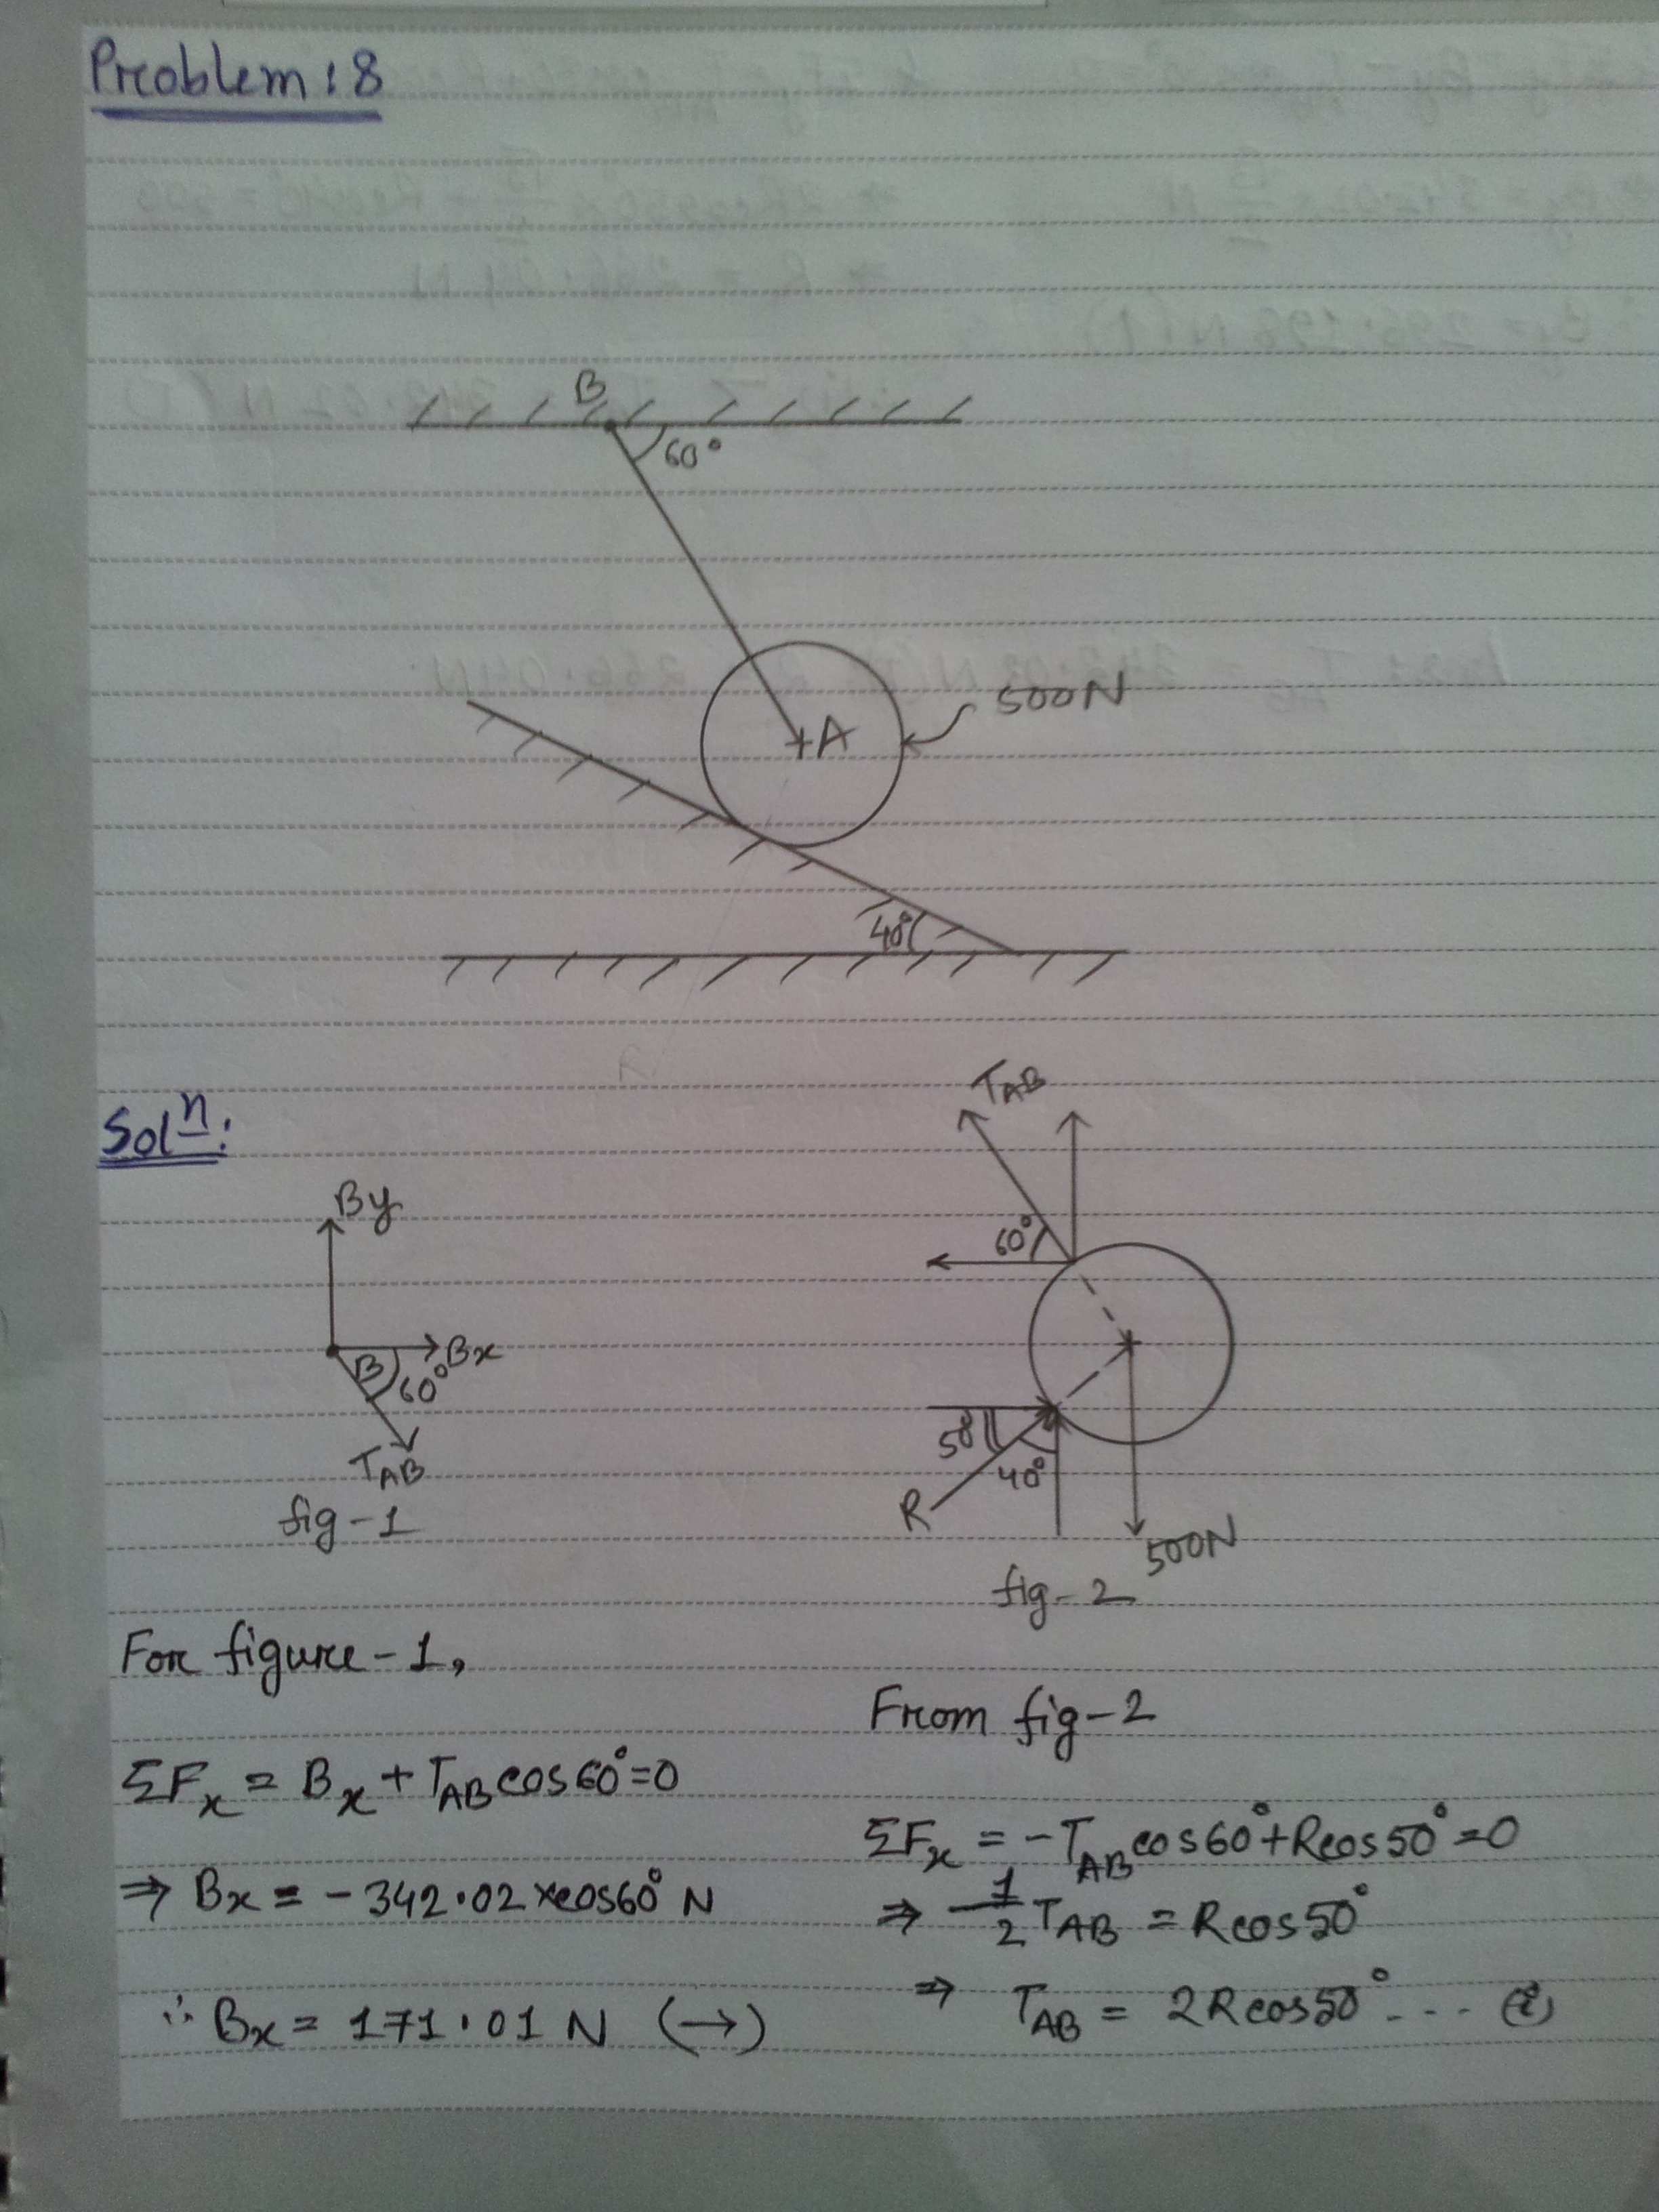 Problem: 8
B
60°
A
500N
40°
Solⁿ:
By
Bx
B
60°
TAB
fig-1
TAB
60°
50°
40°
R
500N
fig-2
For figure-1,
ΣFx = Bx + TAB cos60° = 0
⇒ Bx = -342.02 × cos60° N
∴ Bx = 171.01 N (→)
From fig-2
ΣFx = -TAB cos60° + R cos50° = 0
⇒ -1/2 TAB = R cos50°
⇒ TAB = 2R cos50° --- (i)